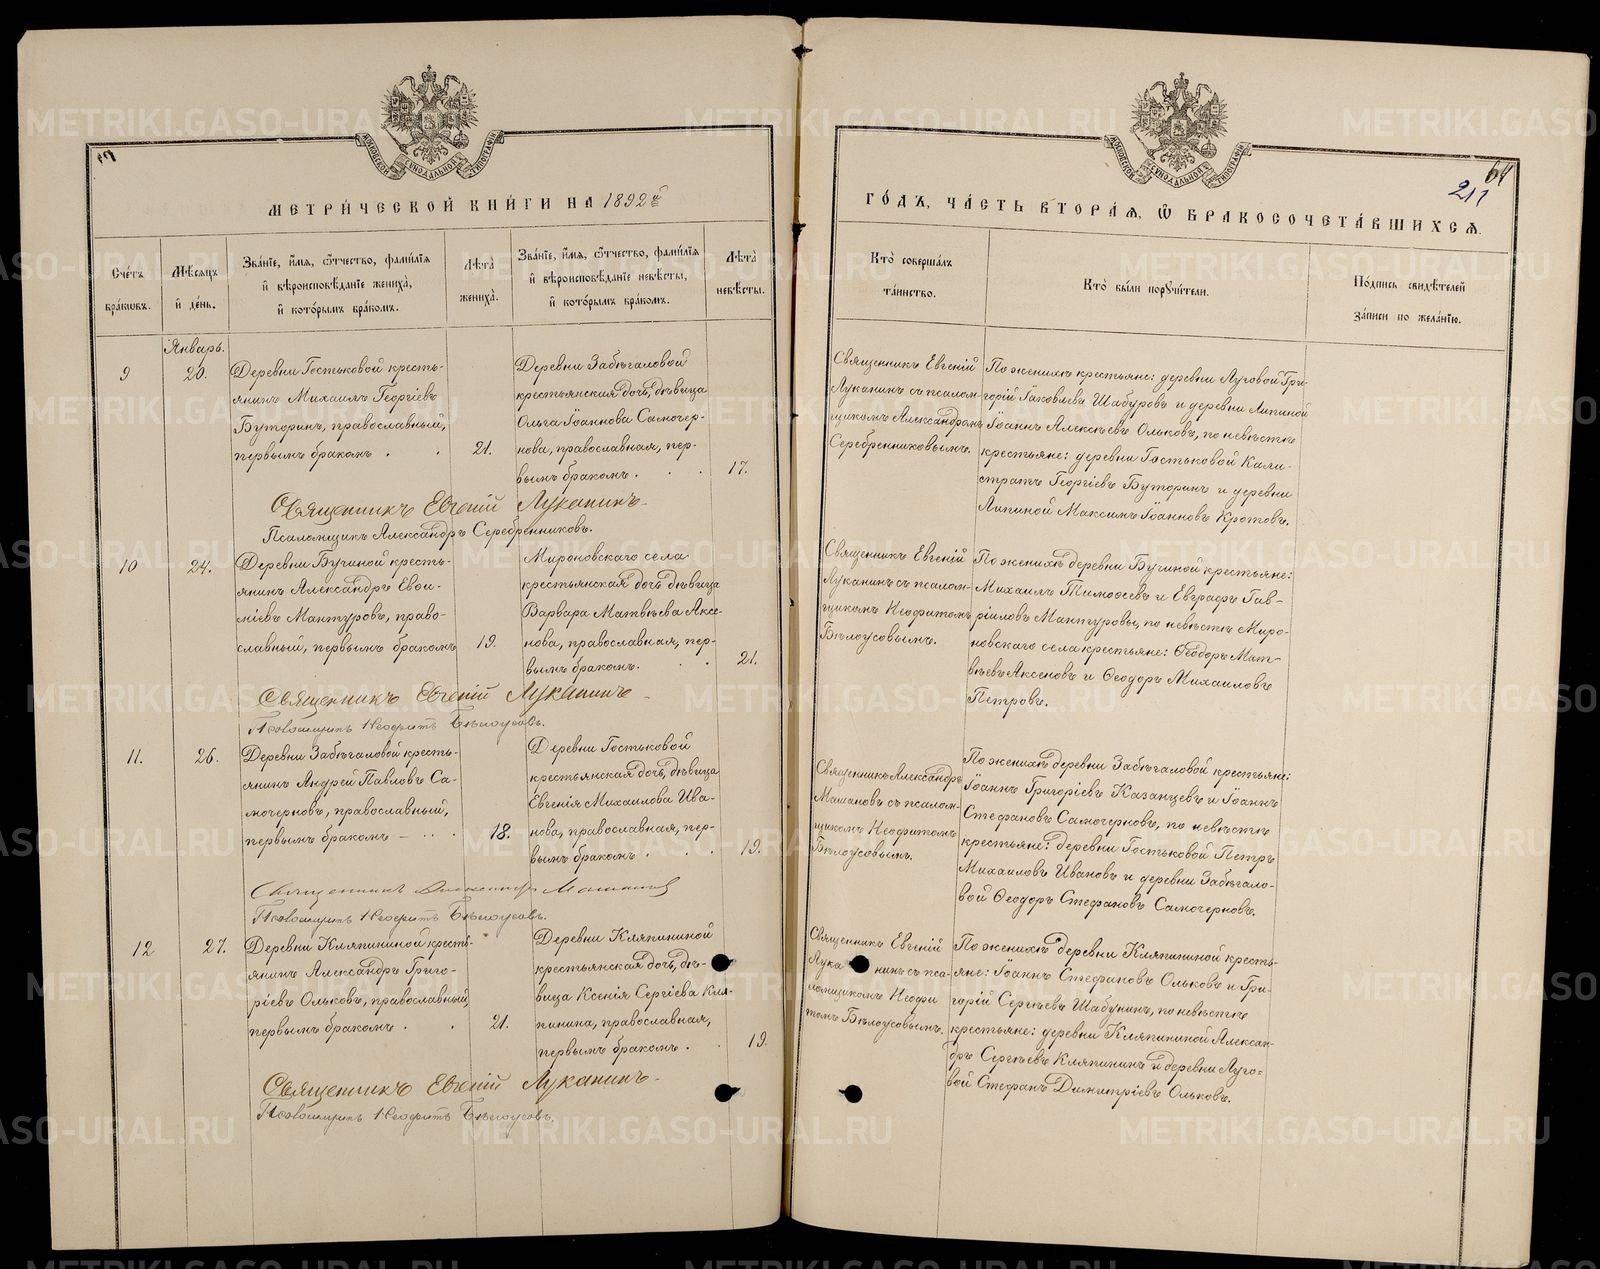 МОСКОВСКОЙ СѴНОДАЛЬНОЙ ТИПОГРАФІИ
МЕТРИ́ЧЕСКОЙ КНИ́ГИ НА 1892й
Сче́тъ бра́ковъ.
Мѣ́сяцъ и҆ де́нь.
Зва́нїе, и҆́мя, ѻ҆́тчество, фами́лїя
и҆ вѣроисповѣ́данїе жениха̀,
и҆ кото́рымъ бра́комъ.
Лѣта̀ жениха̀.
Зва́нїе, и҆́мя, ѻ҆́тчество, фами́лїя
и҆ вѣроисповѣ́данїе невѣ́сты,
и҆ кото́рымъ бра́комъ.
Лѣта̀ невѣ́сты.
Январь.
9
20.
Деревни Гостьковой кресть-
янинъ Михаилъ Георгіевъ
Буторинъ, православный,
первымъ бракомъ . .
21.
Деревни Забѣгаловой
крестьянская дочь, дѣвица
Ольга Іоаннова Самочер-
нова, православная, пер-
вымъ бракомъ . . .
17.
Священникъ Евгеній Луканинъ
Псаломщикъ Александръ Серебренниковъ.
10
24.
Деревни Бучиной кресть-
янинъ Александръ Евои-
міевъ Мантуровъ, право-
славный, первымъ бракомъ
19.
Мироновскаго села
крестьянская дочь дѣвица
Варвара Матвѣева Аксе-
нова, православная, пер-
вымъ бракомъ. . .
21.
Священникъ Евгеній Луканинъ
Псаломщикъ Неофитъ Бѣлоусовъ.
11.
26.
Деревни Забѣгаловой кресть-
янинъ Андрей Павловъ Са-
мочерновъ, православный,
первымъ бракомъ
18.
Деревни Гостьковой
крестьянская дочь, дѣвица
Евгенія Михаилова Ива-
нова, православная, пер-
вымъ бракомъ . . .
19.
Священникъ Александръ Мамановъ
Псаломщикъ Неофитъ Бѣлоусовъ.
12
27.
Деревни Кляпининой кресть-
янинъ Александръ Григо-
ріевъ Ольковъ, православный,
первымъ бракомъ . .
21.
Деревни Кляпининой
крестьянская дочь, дѣ-
вица Ксенія Сергіева Кля-
пинина, православная,
первымъ бракомъ . .
19.
Священникъ Евгеній Луканинъ
Псаломщикъ Неофитъ Бѣлоусовъ.
МОСКОВСКОЙ СѴНОДАЛЬНОЙ ТИПОГРАФІИ
64
211
ГО́ДЪ, ЧА́СТЬ ВТОРА́Я, Ѽ БРАКОСОЧЕТА́ВШИХСЯ.
Кто̀ соверша́лъ
та́инство.
Кто̀ бы́ли порꙋчи́тели.
По́дпись свидѣ́телей
за́писи по жела́нїю.
Священникъ Евгеній
Луканинъ съ псалом-
щикомъ Александромъ
Серебренниковымъ.
По женихѣ крестьяне: деревни Луговой Гри-
горій Іаковлевъ Шабуровъ и деревни Липиной
Іоаннъ Алексѣевъ Ольковъ, по невѣстѣ
крестьяне: деревни Гостьковой Кали-
стратъ Георгіевъ Буторинъ и деревни
Липиной Максимъ Іоанновъ Кротовъ.
Священникъ Евгеній
Луканинъ съ псалом-
щикомъ Неофитомъ
Бѣлоусовымъ.
По женихѣ деревни Бучиной крестьяне:
Михаилъ Тимоѳеевъ и Евграфъ Гав-
ріиловъ Мантуровы, по невѣстѣ Миро-
новскаго села крестьяне: Ѳеодоръ Мат-
вѣевъ Аксеновъ и Ѳеодоръ Михаиловъ
Петровъ.
Священникъ Александръ
Мамановъ съ псалом-
щикомъ Неофитомъ
Бѣлоусовымъ.
По женихѣ деревни Забѣгаловой крестьяне:
Іоаннъ Григоріевъ Казанцевъ и Іоаннъ
Стефановъ Самочерновъ, по невѣстѣ
крестьяне: деревни Гостьковой Петръ
Михаиловъ Ивановъ и деревни Забѣгало-
вой Ѳеодоръ Стефановъ Самочерновъ.
Священникъ Евгеній
Луканинъ съ пса-
ломщикомъ Неофи
томъ Бѣлоусовымъ.
По женихѣ деревни Кляпининой кресть-
яне: Іоаннъ Стефановъ Ольковъ и Гри-
горій Сергѣевъ Шабунинъ, по невѣстѣ
крестьяне: деревни Кляпининой Алексан-
дръ Сергѣевъ Кляпининъ и деревни Луго-
вой Стефанъ Димитріевъ Ольковъ.
METRIKI.GASO-URAL.RU